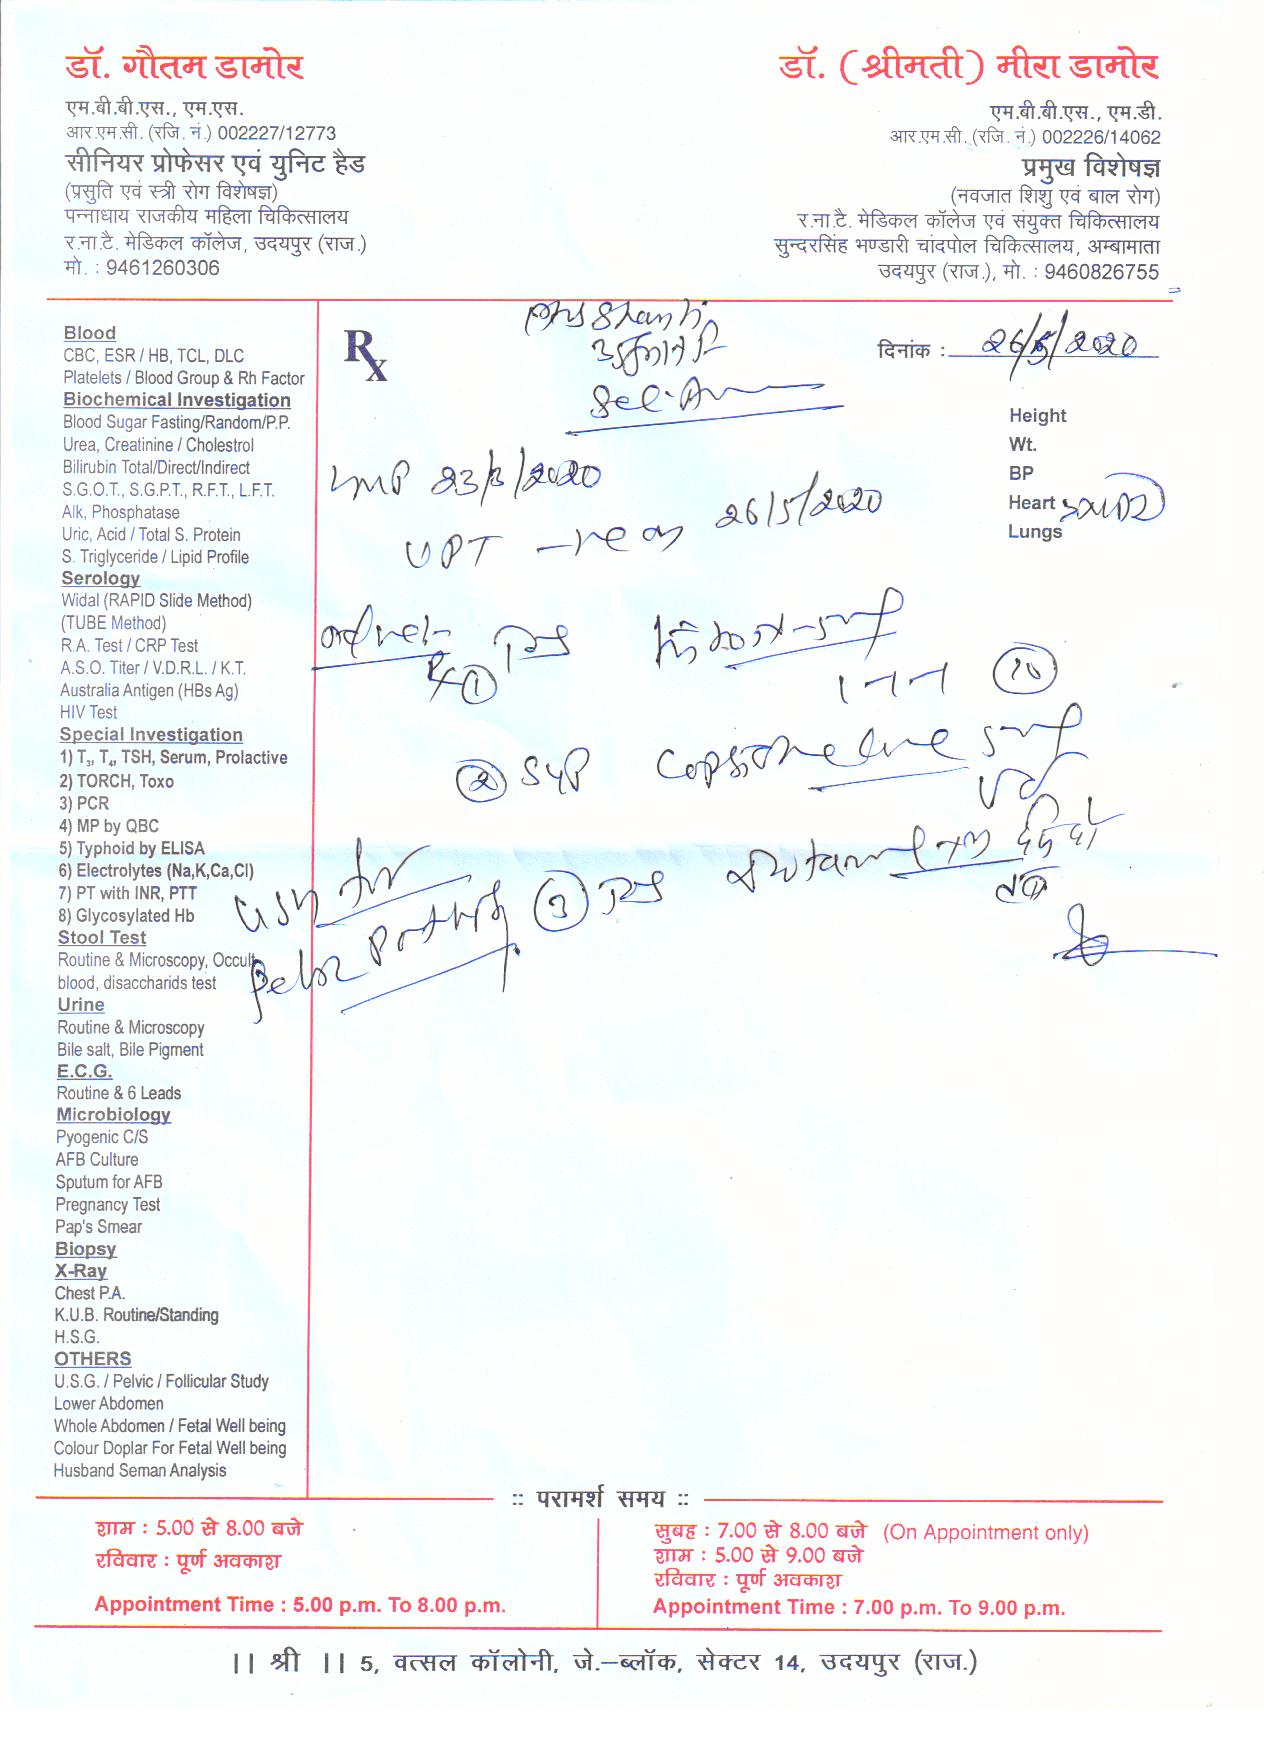 डॉ. गौतम डामोर
एम.बी.बी.एस., एम.एस.
आर.एम.सी. (रजि. नं.) 002227/12773
सीनियर प्रोफेसर एवं युनिट हैड
(प्रसुति एवं स्त्री रोग विशेषज्ञ)
पन्नाधाय राजकीय महिला चिकित्सालय
र.ना.टै. मेडिकल कॉलेज, उदयपुर (राज.)
मो. : 9461260306
डॉ. (श्रीमती) मीरा डामोर
एम.बी.बी.एस., एम.डी.
आर.एम.सी. (रजि. नं.) 002226/14062
प्रमुख विशेषज्ञ
(नवजात शिशु एवं बाल रोग)
र.ना.टै. मेडिकल कॉलेज एवं संयुक्त चिकित्सालय
सुन्दरसिंह भण्डारी चांदपोल चिकित्सालय, अम्बामाता
उदयपुर (राज.), मो. : 9460826755
Blood
CBC, ESR / HB, TCL, DLC
Platelets / Blood Group & Rh Factor
Biochemical Investigation
Blood Sugar Fasting/Random/P.P.
Urea, Creatinine / Cholestrol
Bilirubin Total/Direct/Indirect
S.G.O.T., S.G.P.T., R.F.T., L.F.T.
Alk, Phosphatase
Uric, Acid / Total S. Protein
S. Triglyceride / Lipid Profile
Serology
Widal (RAPID Slide Method)
(TUBE Method)
R.A. Test / CRP Test
A.S.O. Titer / V.D.R.L. / K.T.
Australia Antigen (HBs Ag)
HIV Test
Special Investigation
1) T₃, T₄, TSH, Serum, Prolactive
2) TORCH, Toxo
3) PCR
4) MP by QBC
5) Typhoid by ELISA
6) Electrolytes (Na,K,Ca,Cl)
7) PT with INR, PTT
8) Glycosylated Hb
Stool Test
Routine & Microscopy, Occult
blood, disaccharids test
Urine
Routine & Microscopy
Bile salt, Bile Pigment
E.C.G.
Routine & 6 Leads
Microbiology
Pyogenic C/S
AFB Culture
Sputum for AFB
Pregnancy Test
Pap's Smear
Biopsy
X-Ray
Chest P.A.
K.U.B. Routine/Standing
H.S.G.
OTHERS
U.S.G. / Pelvic / Follicular Study
Lower Abdomen
Whole Abdomen / Fetal Well being
Colour Doplar For Fetal Well being
Husband Seman Analysis
Rx
Shanti
दिनांक : 26/5/2020
Height
Wt.
BP
Heart
Lungs
LMP 23/3/2020
UPT -ve on 26/5/2020
① 10
② Syp
USG for
③
:: परामर्श समय ::
शाम : 5.00 से 8.00 बजे
रविवार : पूर्ण अवकाश
Appointment Time : 5.00 p.m. To 8.00 p.m.
सुबह : 7.00 से 8.00 बजे (On Appointment only)
शाम : 5.00 से 9.00 बजे
रविवार : पूर्ण अवकाश
Appointment Time : 7.00 p.m. To 9.00 p.m.
|| श्री || 5, वत्सल कॉलोनी, जे.–ब्लॉक, सेक्टर 14, उदयपुर (राज.)